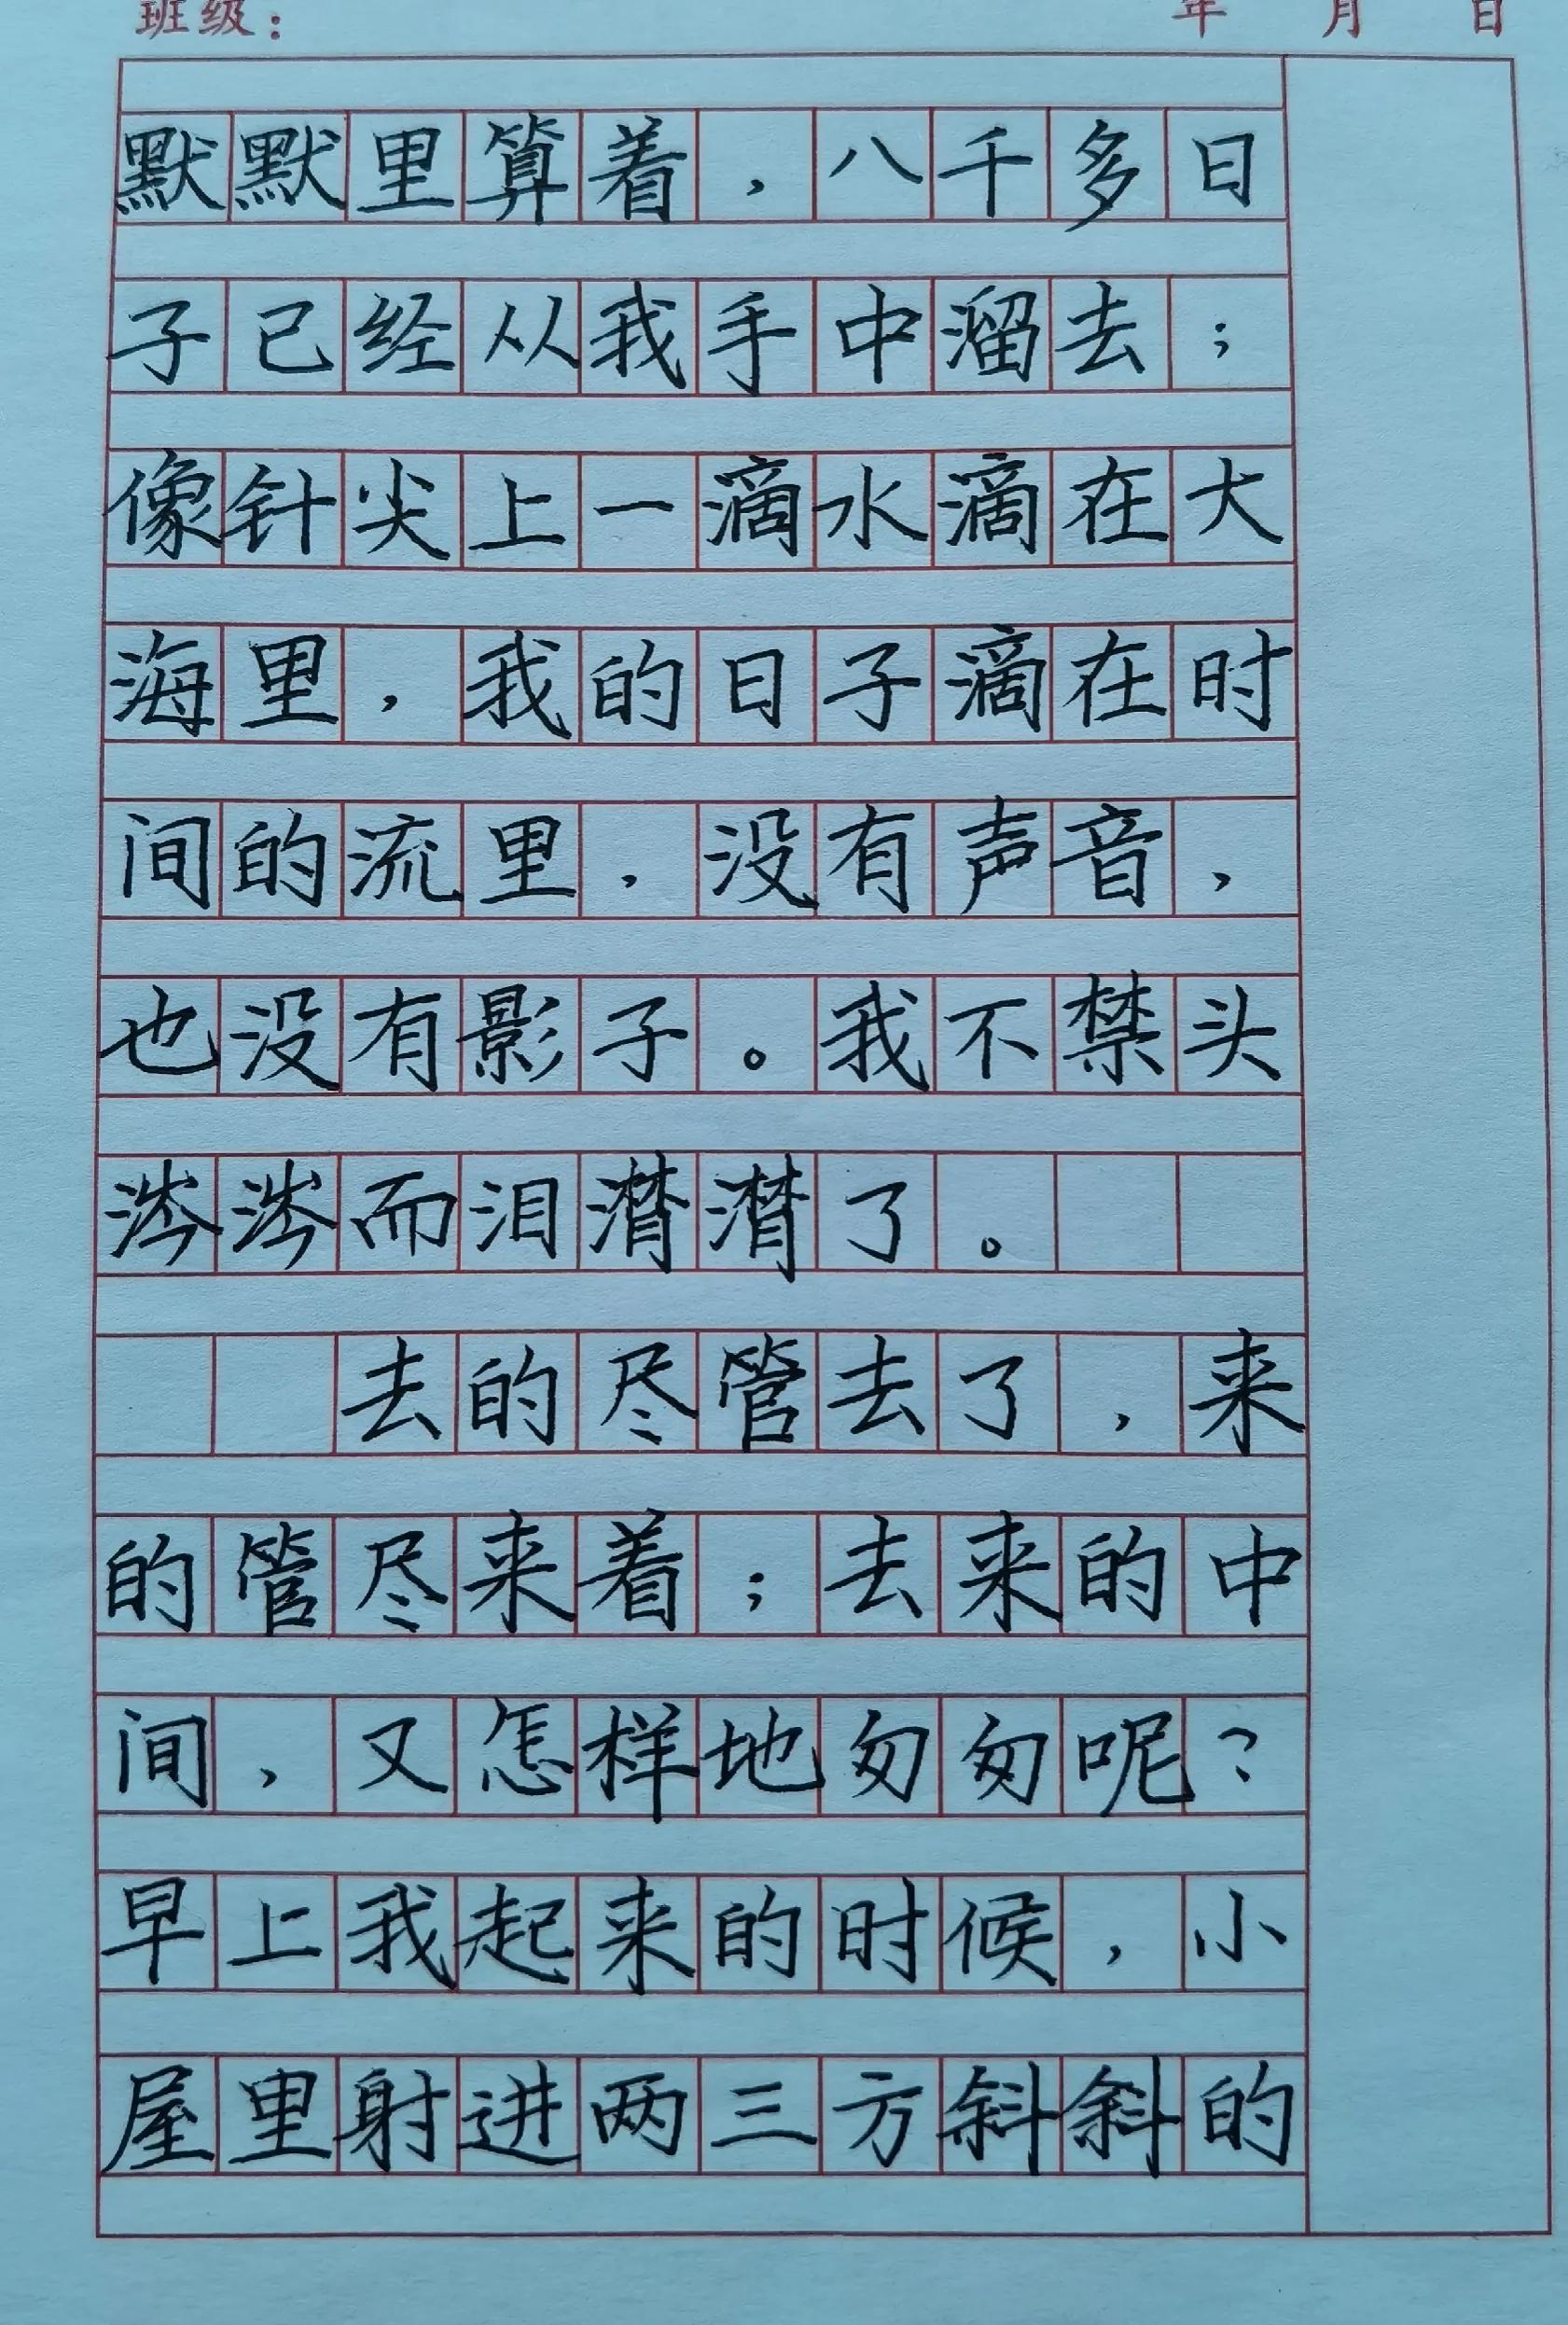 班级： 年 月 日
默默里算着，八千多日
子已经从我手中溜去；
像针尖上一滴水滴在大
海里，我的日子滴在时
间的流里，没有声音，
也没有影子。我不禁头
涔涔而泪潸潸了。
去的尽管去了，来
的管尽来着；去来的中
间，又怎样地匆匆呢？
早上我起来的时候，小
屋里射进两三方斜斜的